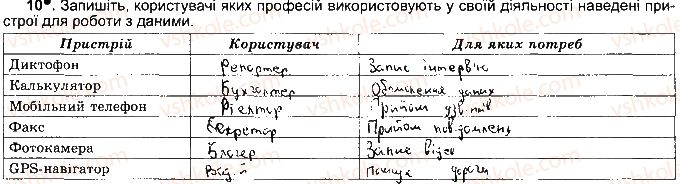 10•. Запишіть, користувачі яких професій використовують у своїй діяльності наведені при-
строї для роботи з даними.
Пристрій Користувач Для яких потреб
Диктофон Репортер Запис інтерв'ю
Калькулятор Бухгалтер Обчислення даних
Мобільний телефон Ріелтор Прийом дзвінків
Факс Секретар Прийом повідомлень
Фотокамера Блогер Запис відео
GPS-навігатор Водій Пошук дороги